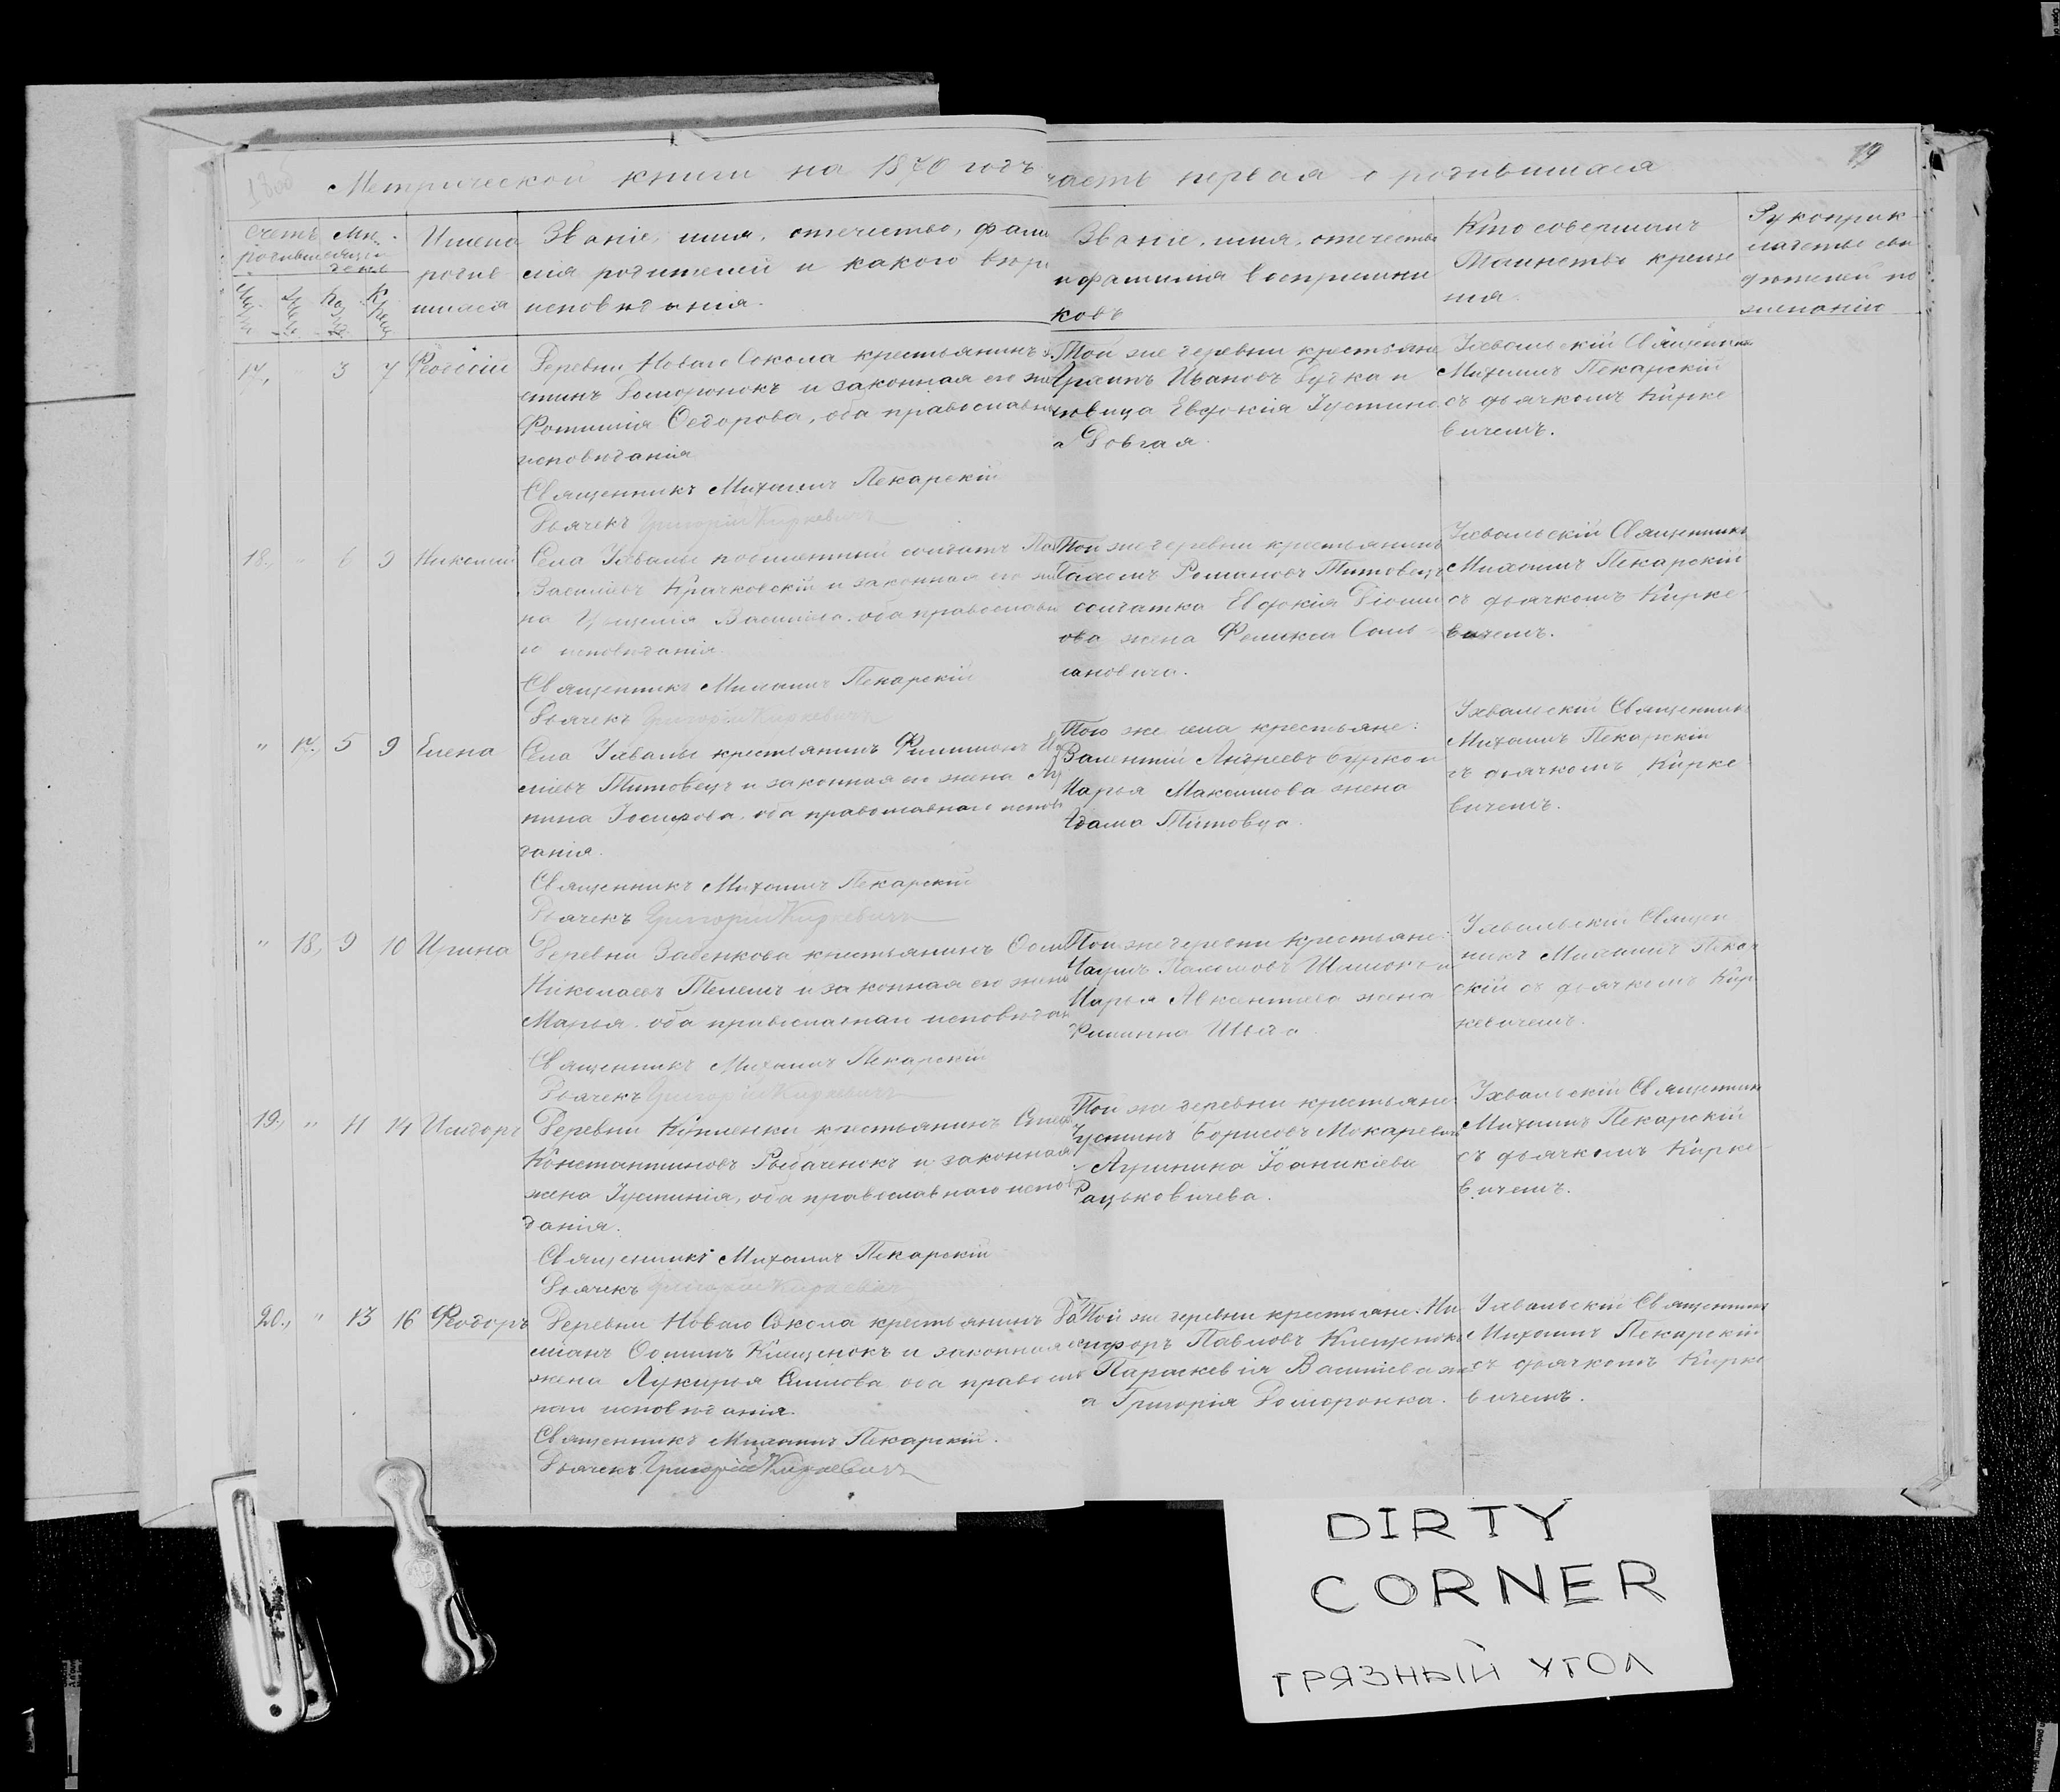 Метрической книги на 1870 годъ часть первая о родившихся
19
Счетъ родившихся
Имена родив шихся
Званіе, имя, отечество, фами
лія родителей и какого вѣро
исповѣданія.
Званіе, имя, отечество
и фамилія воспріемни
ковъ
Кто совершалъ
Таинство креще
нія.
Рукоприк
ладство сви
дѣтелей по
желанію
17, 3 7
Деревни Новаго Сокола крестьянинъ
и законная его
Федорова, оба православна
исповѣданія
Священникъ Михаилъ Пекарскій
Дьячекъ Григорій Киркевичъ
Той же деревни крестьяне
Ивановъ Дудка и
Евдокія Іустино
а Довгая.
Ухвальскій Священникъ
Михаилъ Пекарскій
съ дьячкомъ Кирке
вичемъ.
18., " 6 9 Николай
Села Ухвалы солдатъ
и законная его
на Василіева, оба православн
го исповѣданія
Священникъ Михаилъ Пекарскій
Дьячекъ Григорій Киркевичъ
Той же деревни крестьянинъ
Романовъ Титовецъ
солдатка Евдокія
ова жена Феликса Силь
вановича.
Ухвальскій Священникъ
Михаилъ Пекарскій
съ дьячкомъ Кирке
вичемъ.
" 17., 5 9 Елена
Села Ухвалы крестьянинъ Филимонъ
Титовецъ и законная его жена
Іосифова, оба православнаго исповѣ
данія.
Священникъ Михаилъ Пекарскій
Дьячекъ Григорій Киркевичъ
Того же села крестьяне:
Валентій Андреевъ Бурко и
Марья Максимова жена
Адама Титовца.
Ухвальскій Священникъ
Михаилъ Пекарскій
съ дьячкомъ Кирке
вичемъ.
" 18, 9 10 Ирина
Деревни Забенкова крестьянинъ
Николаевъ и законная его жена
Марья, оба православнаго исповѣдан
Священникъ Михаилъ Пекарскій
Дьячекъ Григорій Киркевичъ
Той же деревни крестьяне:
Пахомовъ и
Марья жена
Филиппа
Ухвальскій Священ
никъ Михаилъ Пекар
скій съ дьячкомъ Кир
кевичемъ.
19., " 11 14 Исидоръ
Деревни Купленки крестьянинъ
Константиновъ Рыбаченокъ и законная
жена Іустинія, оба православнаго исповѣ
данія.
Священникъ Михаилъ Пекарскій
Дьячекъ Григорій Киркевичъ
Той же деревни крестьяне
Іустинъ Борисовъ Макаревич
Агрипина Іоаникіева
Рацьковичева.
Ухвальскій Священникъ
Михаилъ Пекарскій
съ дьячкомъ Кирке
вичемъ.
20., " 13 16 Феодоръ
Деревни Новаго Сокола крестьянинъ Да
міанъ Клещенокъ и законная
жена Лукерья оба православ
наго исповѣданія.
Священникъ Михаилъ Пекарскій.
Дьячекъ Григорій Киркевичъ
Той же деревни крестьяне: Ни
кифоръ Павловъ Клещенокъ
Параскевія Василіева жен
а Григорія Доморонка.
Ухвальскій Священникъ
Михаилъ Пекарскій
съ дьячкомъ Кирке
вичемъ.
DIRTY
CORNER
ГРЯЗНЫЙ УГОЛ